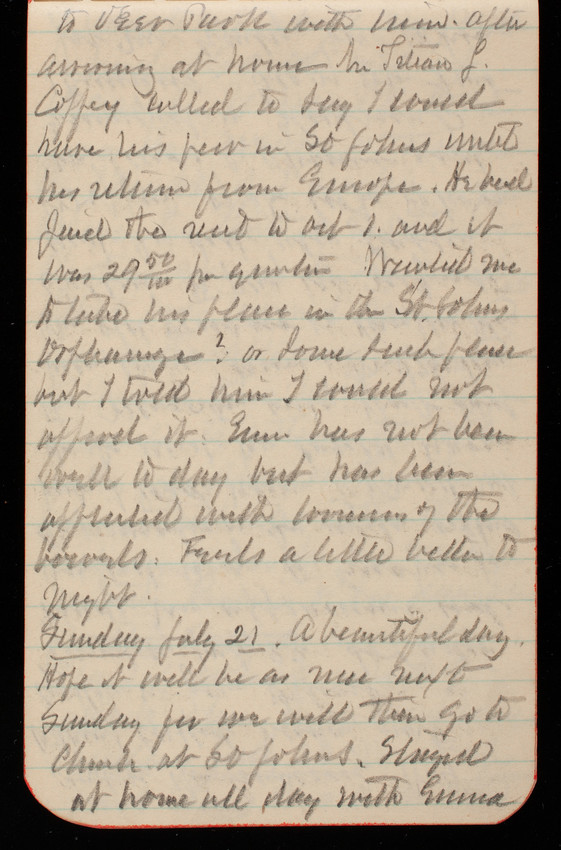 to Deer Park with him. After
arriving at home Mr Titian J.
Coffey called to say I could
have his pew in St Johns until
his return from Europe. He had
paid the rent to Oct 1. and it
was 29 50/100 per quarter Wanted me
to take his place in the St. Johns
Orphanage? or some such place
but I told him I could not
afford it. Emma has not been
well to day but has been
affected with looseness of the
bowels. Feels a little better to
night.
Sunday July 21. A beautiful day.
Hope it will be as nice next
Sunday for we will then go to
Church at St Johns. Stayed
at home all day with Emma